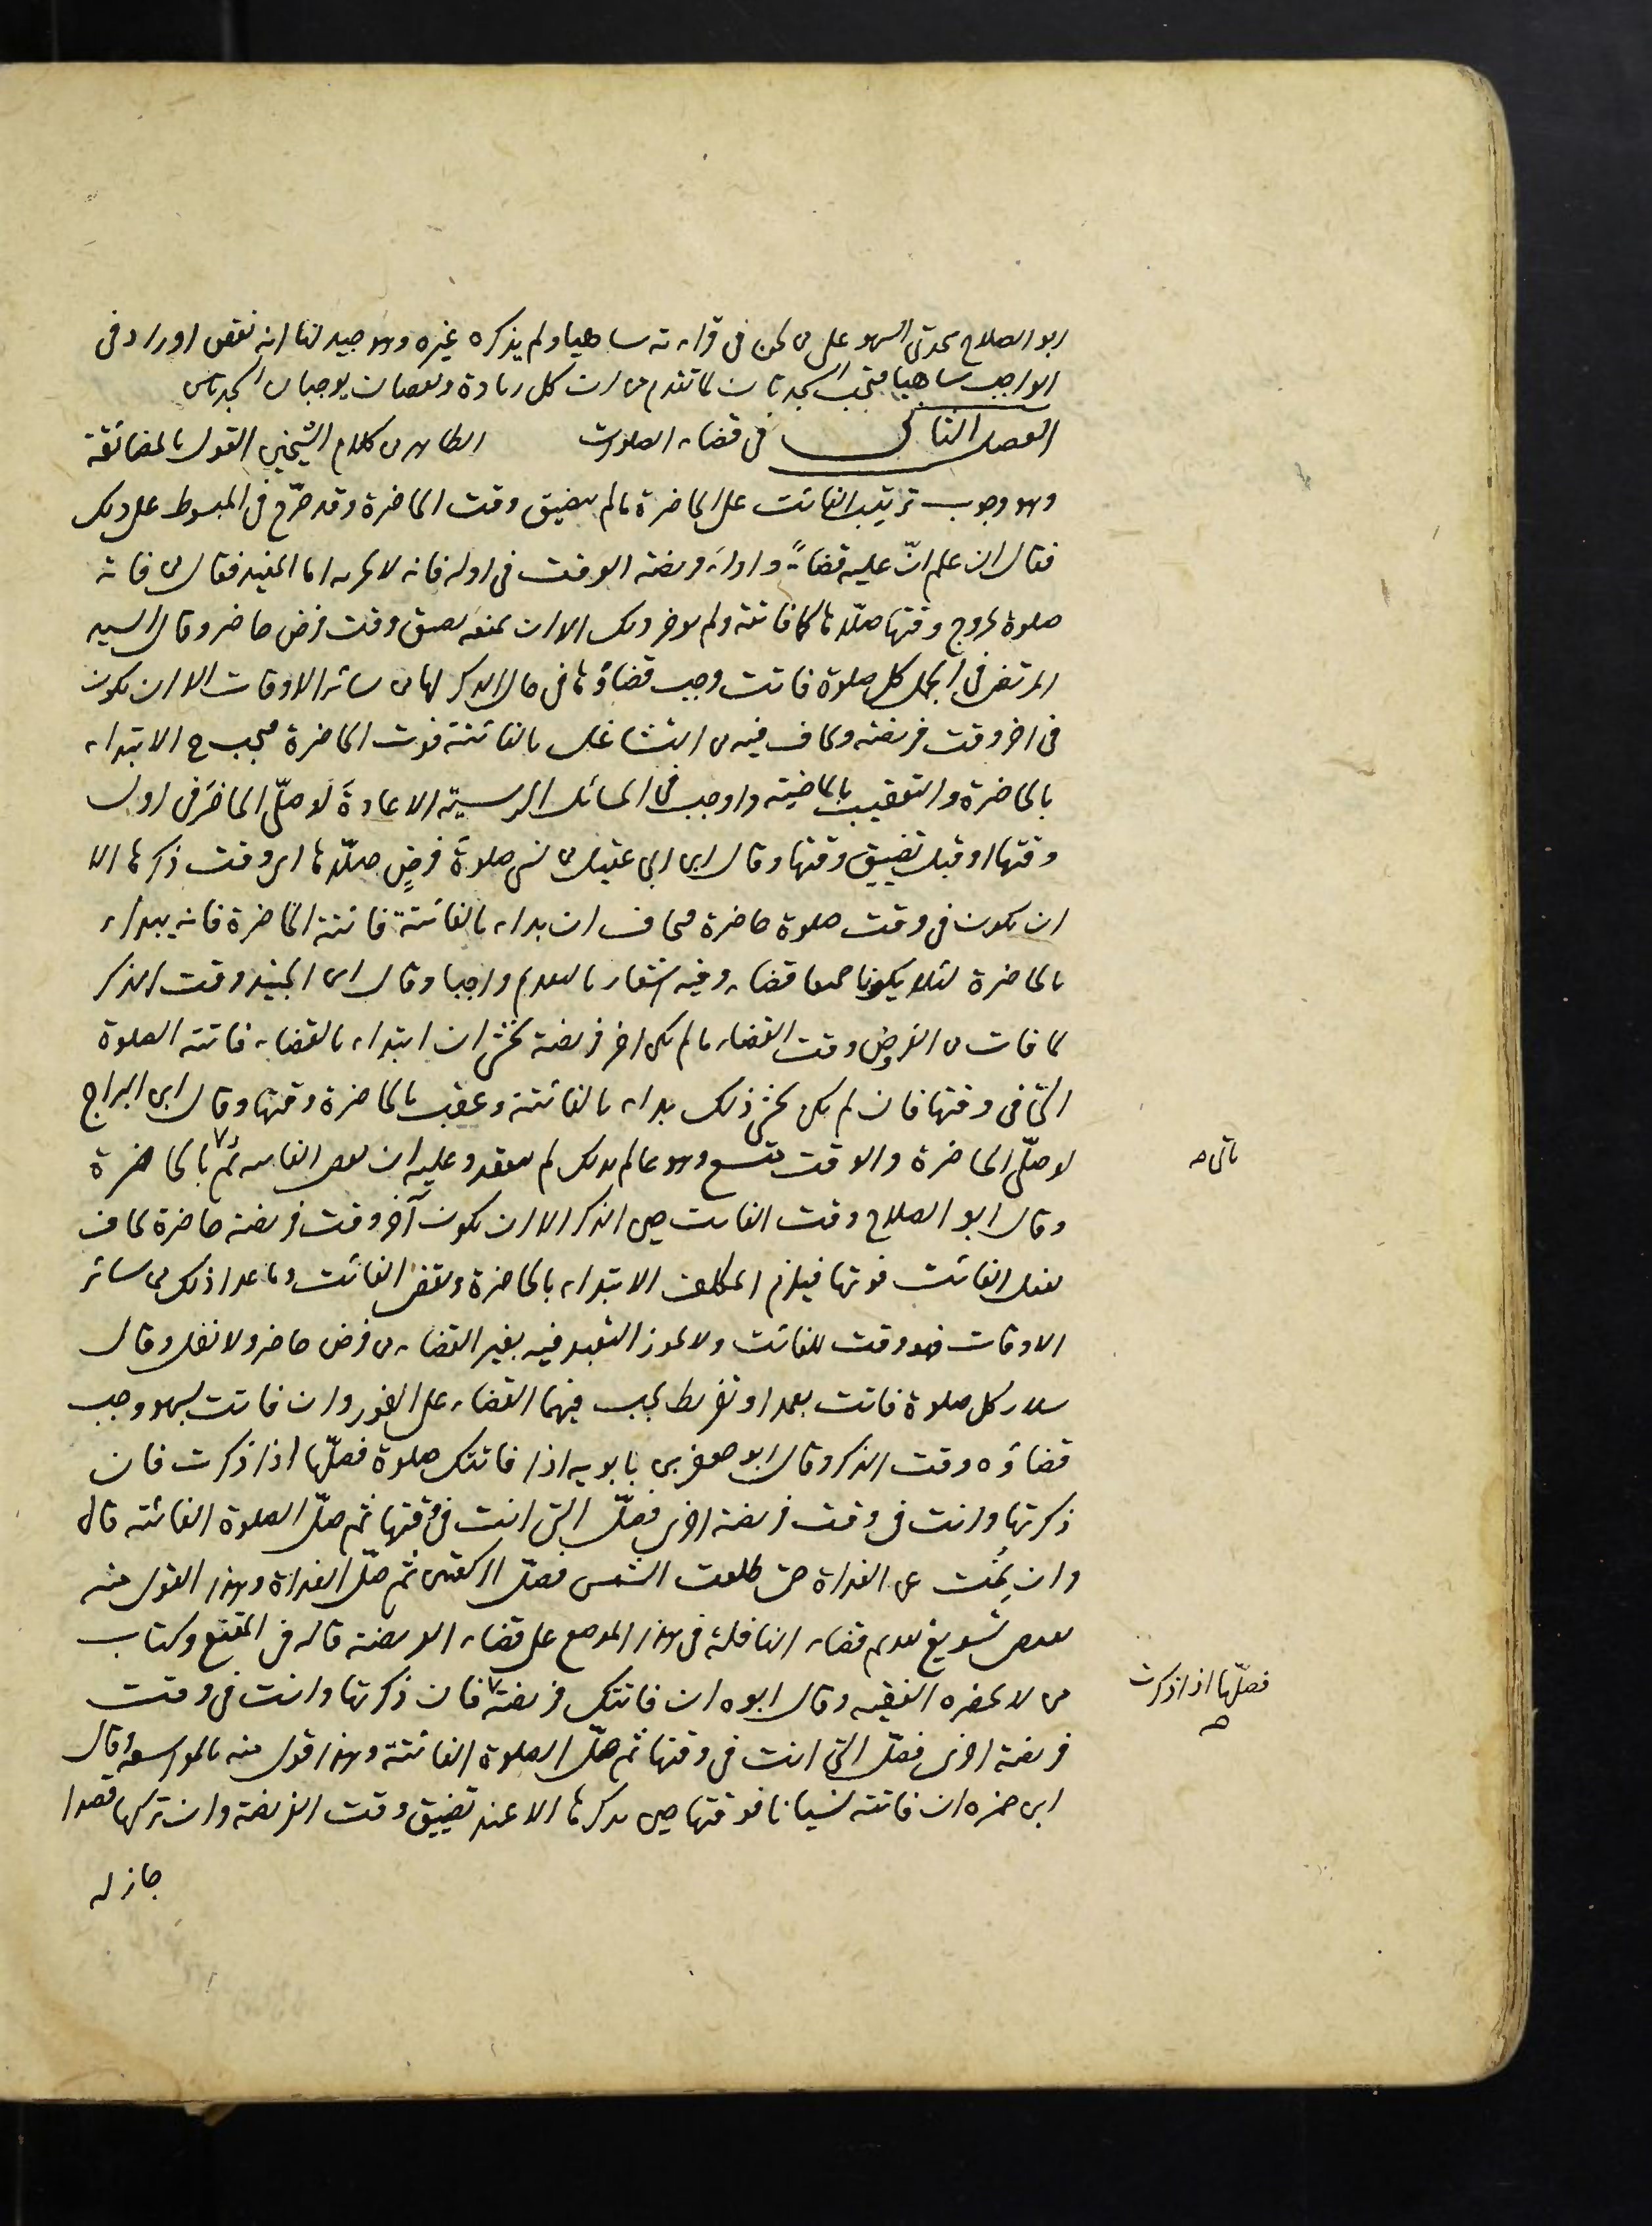 ابو الصلاح سجدتى السهو على من لحن فى قراءته ساهيا ولم يذكره غيره وهو جيد لنا انه نقص او زاد فى
الواجب ساهيا فتجب السجدتان لما تقدم من ان كل زيادة ونقصان يوجبان السجدتين
الفصل الثانى فى قضاء الصلوات الظاهر من كلام الشيخين القول بالمضائقة
وهو وجوب ترتيب الفائت على الحاضرة ما لم يتضيق وقت الحاضرة وقد صرّح فى المبسوط على ذلك
فقال ان علم انّ عليه قضاءً واداء فريضة الوقت فى اوله فانه لا يجزيه اما المفيد فقال من فاته
صلوة لخروج وقتها صلّاها كما فاتته ولم يؤخر ذلك الا ان يمنعه تضيق وقت فرض حاضر وقال السيد
المرتضى فى الجمل كل صلوة فاتت وجب قضاؤها فى حال الذكر لها من سائر الاوقات الا ان يكون
فى اخر وقت فريضة ويخاف فيه من التشاغل بالفائتة فوت الحاضرة فيجب ح الابتداء
بالحاضرة والتعقيب بالماضية واوجب فى المسائل الرسية الاعادة لو صلّى الحاضرة فى اول
وقتها او قبل تضييق وقتها وقال ابن ابى عقيل من نسى صلوةَ فرضٍ صلّاها اى وقت ذكرها الا
ان يكون فى وقت صلوة حاضرة يخاف ان بداء بالفائتة فاتته الحاضرة فانه يبداء
بالحاضرة لئلا يكونا جميعا قضاء وفيه اشعار بالتقديم واجبا وقال ابن الجنيد وقت الذكر
لما فات من الفروض وقت القضاء ما لم يكن اخر فريضة يخشى ان ابتداء بالقضاء فاتته الصلوة
التى فى وقتها فان لم يكن يخشى ذلك بداء بالفائتة وعقب بالحاضرة وقتها وقال ابن البراج
لو صلّى الحاضرة والوقت متسع وهو عالم بذلك لم ينعقد وعليه ان يقضى الفائتة ثم بالحاضرة
ياتى صح
وقال ابو الصلاح وقت الفائت حين الذكر الا ان يكون آخر وقت فريضة حاضرة يخاف
بفعل الفائت فوتها فيلزم المكلف الابتداء بالحاضرة ويقضى الفائت وما عدا ذلك من سائر
الاوقات فهو وقت للفائت ولا يجوز التعبد فيه بغير القضاء من فرض حاضر ولا نفل وقال
سلار كل صلوة فاتت بعمد او تفريط يجب فيهما القضاء على الفور وان فاتت بسهو وجب
قضاؤه وقت الذكر وقال ابو جعفر بن بابويه اذا فاتتك صلوة فصلّها اذا ذكرت فان
ذكرتها وانت فى وقت فريضة اخرى فصلّ التى انت فى وقتها ثم صلّ الصلوة الفائتة قال
وان نمت عن الغداة حتى طلعت الشمس فصلّ الركعتين ثم صلّ الغداة وهذا القول منه
يقتضى تسويغ تقديم قضاء النافلة فى هذا الموضع على قضاء الفريضة قاله فى المقنع وكتاب
من لا يحضره الفقيه وقال ابوه ان فاتتك فريضة فان ذكرتها وانت فى وقت
فصلّها اذا ذكرت صح
فريضة اخرى فصلّ التى انت فى وقتها ثم صلّ الصلوة الفائتة وهذا قول منه بالمواسعة وقال
ابن حمزه ان فاتته نسيانا فوقتها حين يذكرها الا عند تضييق وقت الفريضة وان تركها قصدا
جاز له